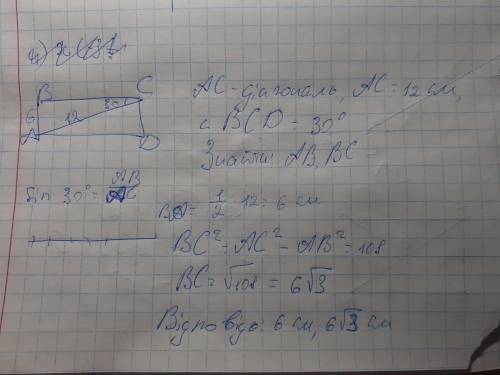 4)
B C
30°
6 12
A D
AC - діагональ, AC = 12 см,
BCD = 30°
Знайти AB, BC
sin 30° = AB/AC
BA = 1/2 · 12 = 6 см
BC² = AC² - AB² = 108
BC = √108 = 6√3
Відповідь: 6 см, 6√3 см